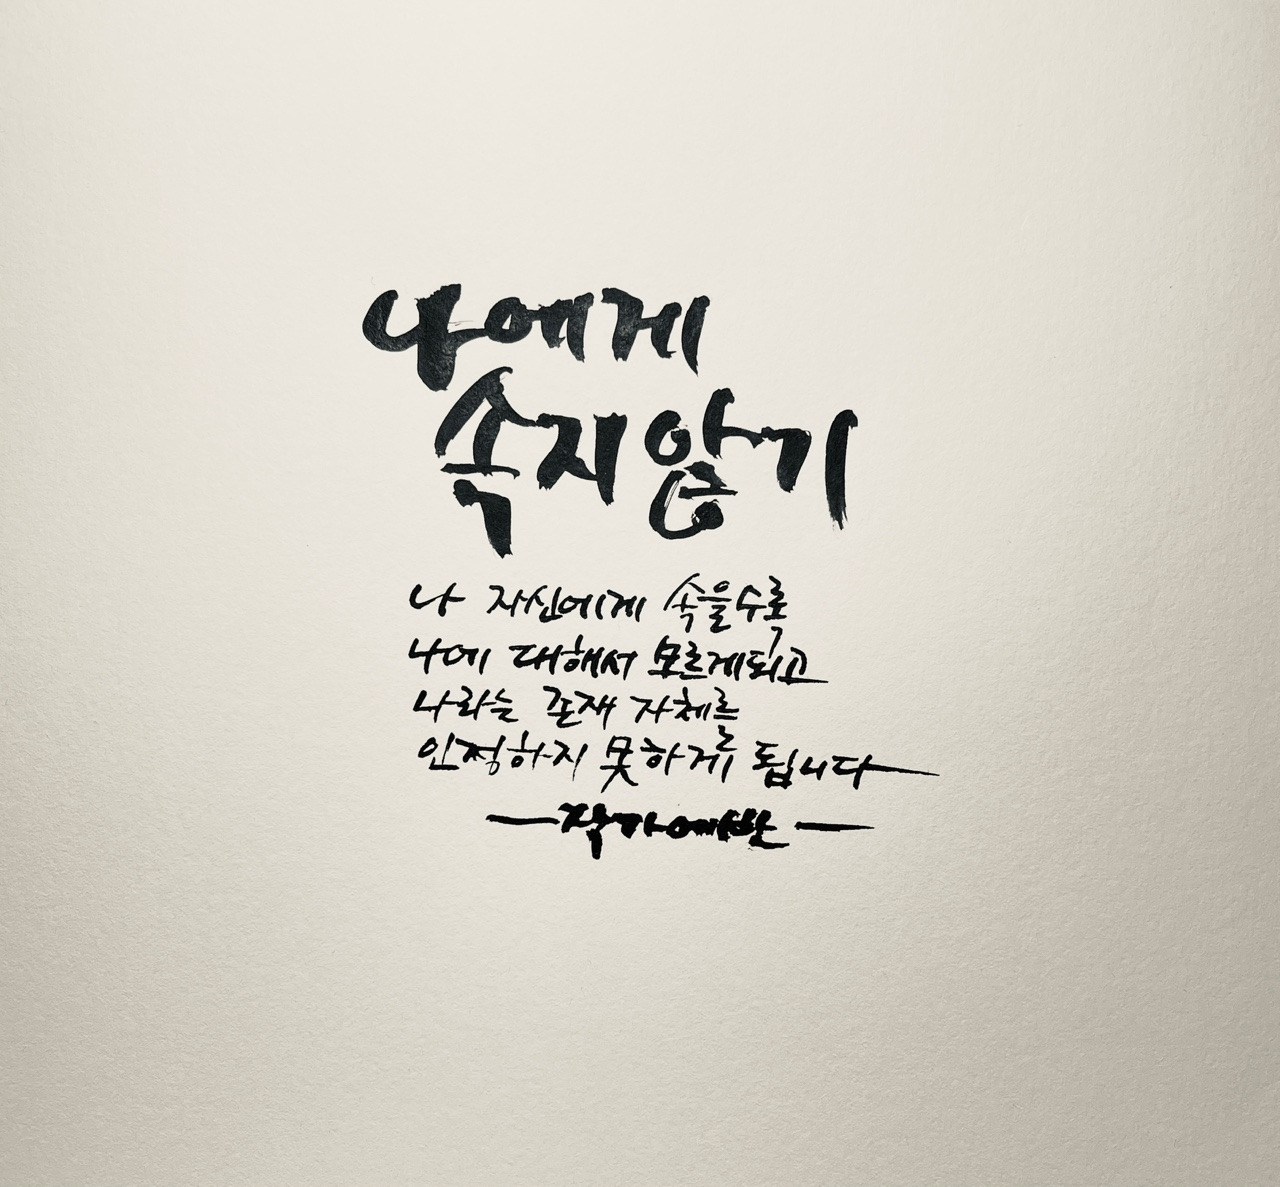 나에게
속지않기
나 자신에게 속을수록
나에 대해서 모르게되고
나라는 존재 자체를
인정하지 못하게 됩니다
작가